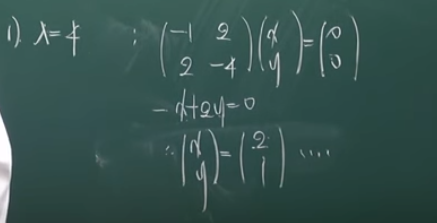 i) λ=4 : (-1 2
2 -4)(x
y)=(0
0)
-x+2y=0
∴ (x
y)=(2
1) ....